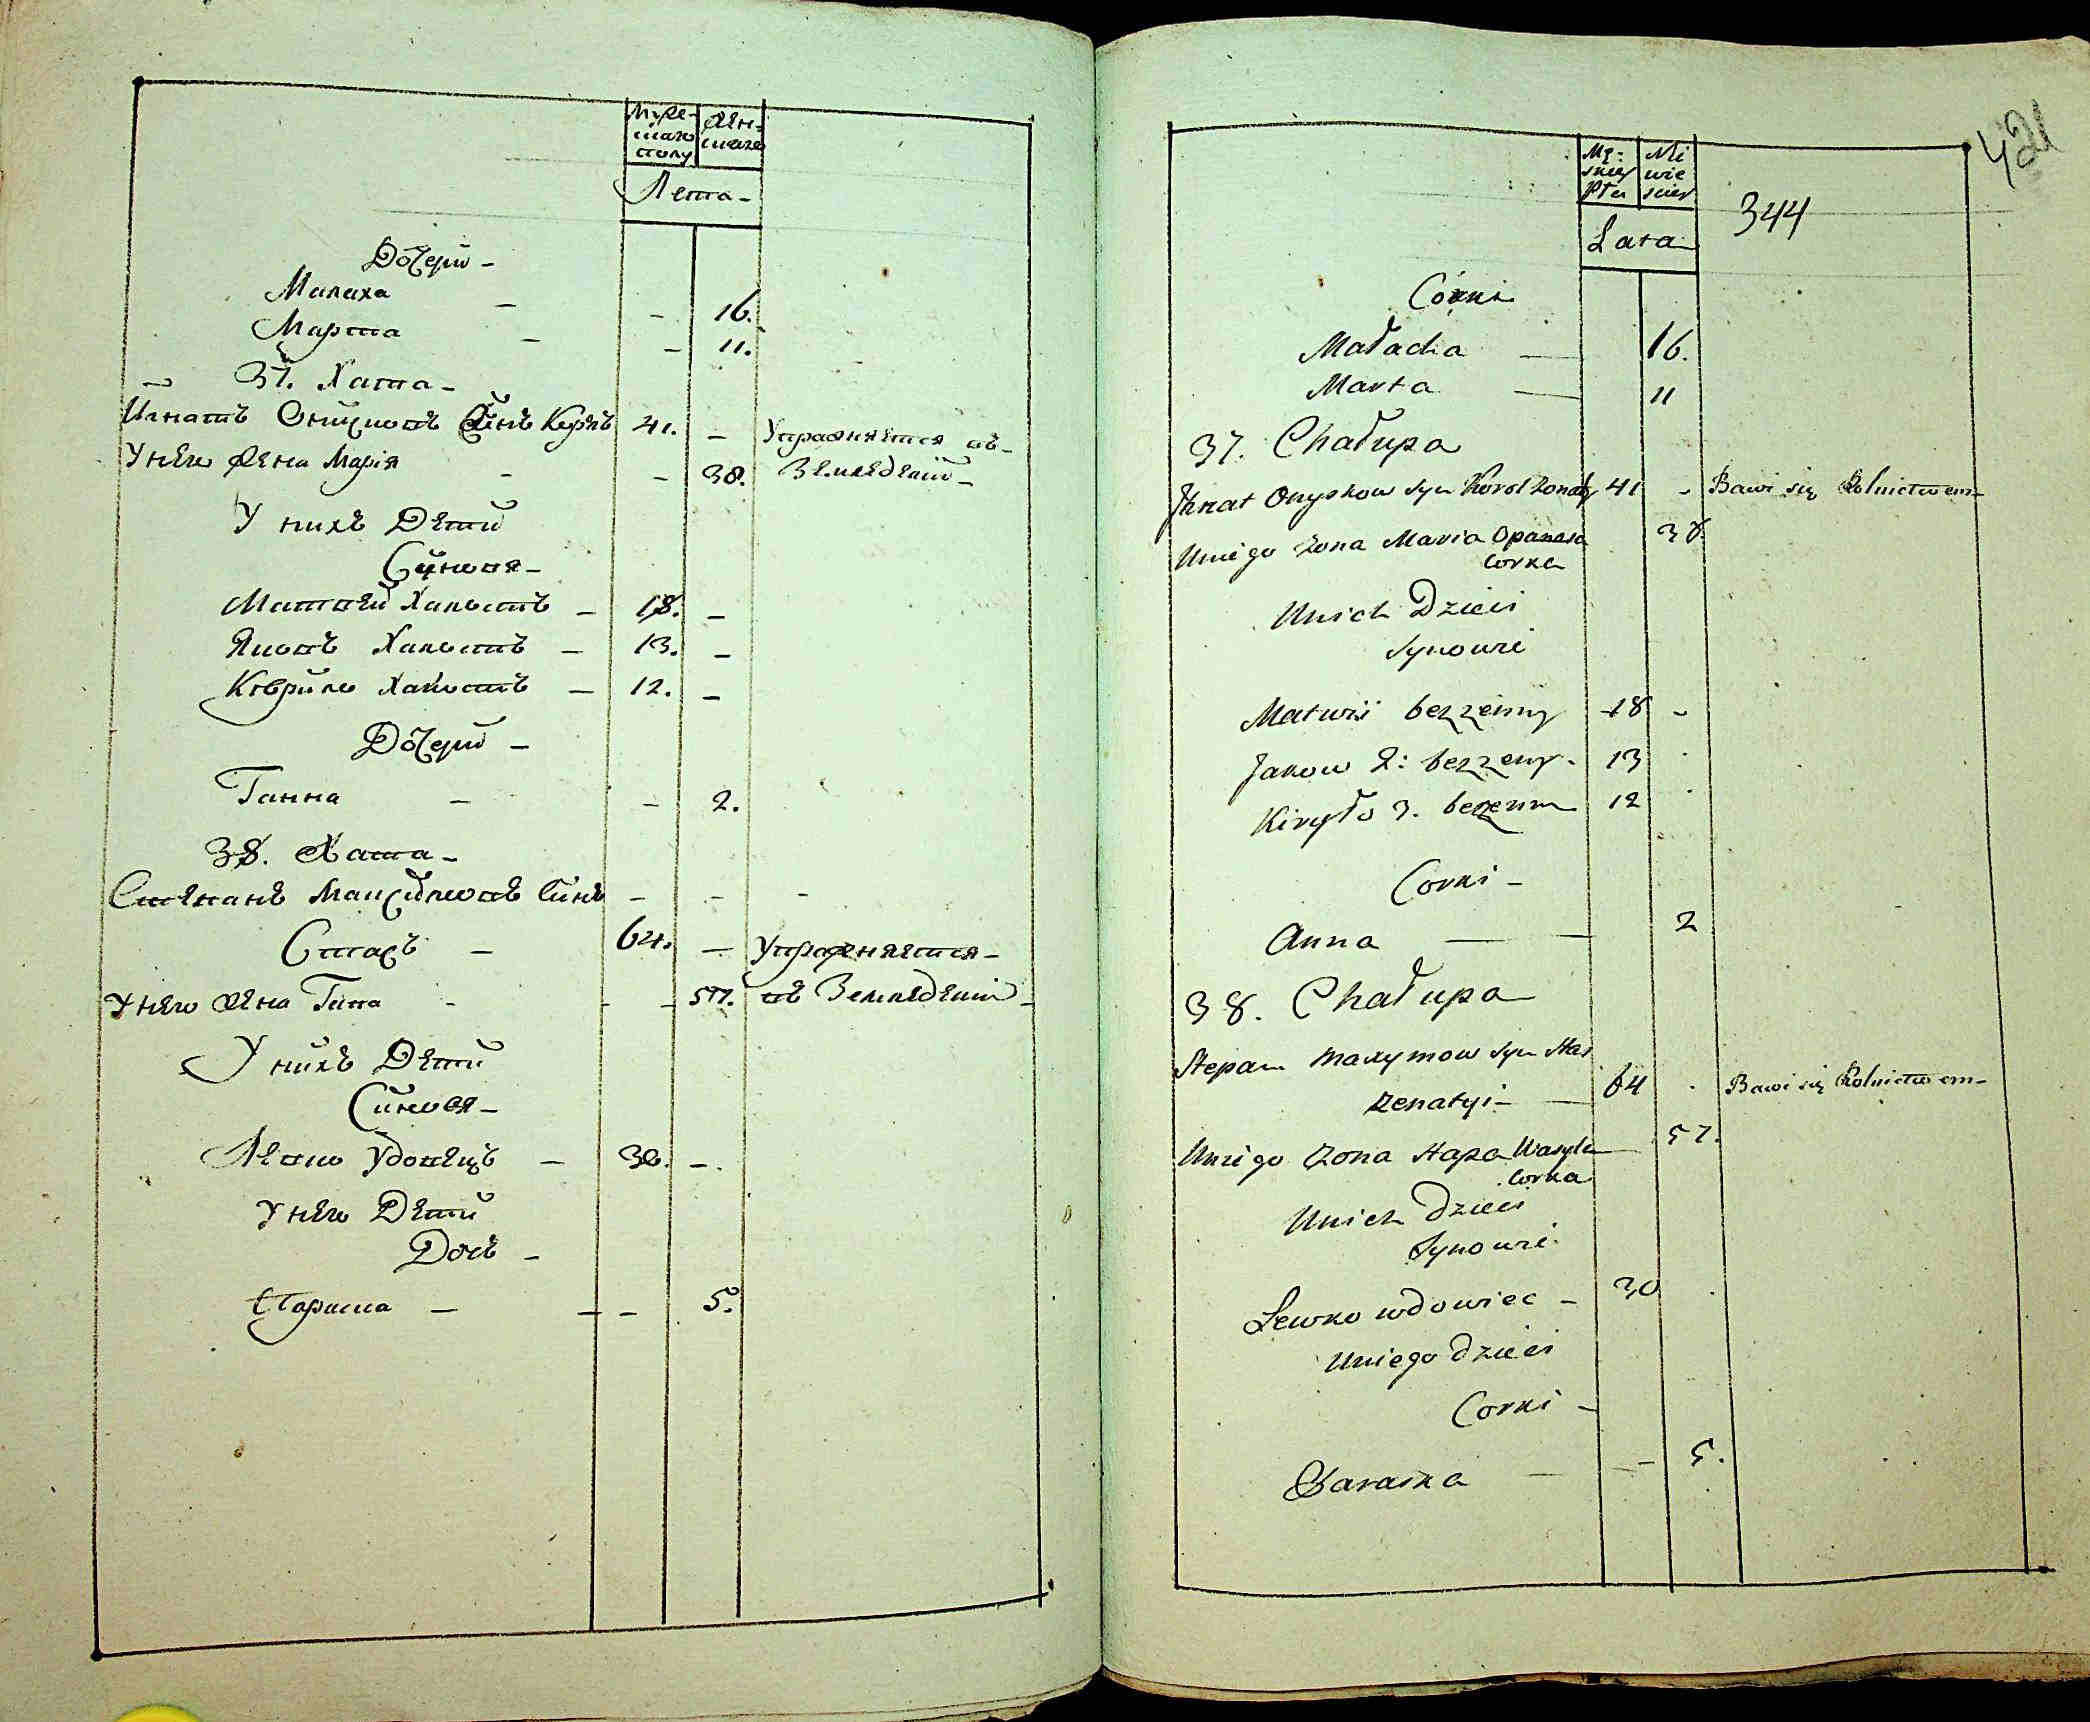 Муже-
скаго
полу
Жен-
скаго
Лета
Дочери
Малаха - - 16.
Марта - - 11.
37. Хата
Игнатъ Онисковъ Синъ 41. - Упражняется въ
У него Жена Марія - - 38. Земледелии
У нихъ Дети
Синовя
Матвей Халостъ - 18. -
Яковъ Халостъ - 13. -
Кирило Халостъ - 12. -
Дочери
Ганна - - 2.
38. Хата
Степанъ Максимовъ Синъ - - -
Стась - 64. - Упражняется
У него Жена - - 57. въ Земледелии
У нихъ Дети
Синовя
Левко Удовецъ - 30. -
У него Дети
Дочь
Параска - - - 5.
421
344
Mę:
skiey
Płci
Nie
wie
sciey
Lata
Córki
Małacha — 16.
Marta — 11
37. Chałupa
Ihnat Onyskow syn Korol Zonaty 41 - Bawi się Rolnictwem
Uniego Zona Maria Opanasa 38.
Corka
Unich Dzieci
Synowie
Matwii bezzenny 18 -
Jakow 2: bezzeny. 13
Kiryło 3. bezzenn 12
Corki -
Anna — 2
38. Chałupa
Stepan Maxymow syn Stas
Zenatyi - 64 Bawi się Rolnictwem
Uniego Zona Hapa Wasyla 57.
Corka
Unich Dzieci
Synowie
Lewko wdowiec - 30
Uniego Dzieci
Corki -
Paraska — - 5.